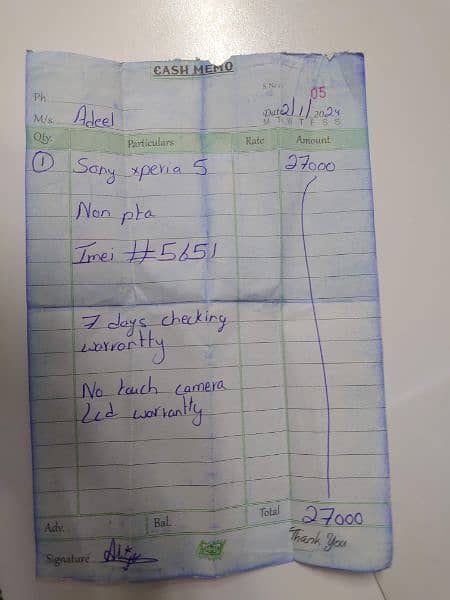 CASH MEMO
S.No. 05
Ph
M/s. Adeel Date 2/1/2024
M T W T F S S
Qty. Particulars Rate Amount
1 Sony xperia 5 27000
Non pta
Imei #5651
7 days checking
warrantty
No touch camera
Lcd warrantty
Adv. Bal. Total 27000
Thank You
Signature